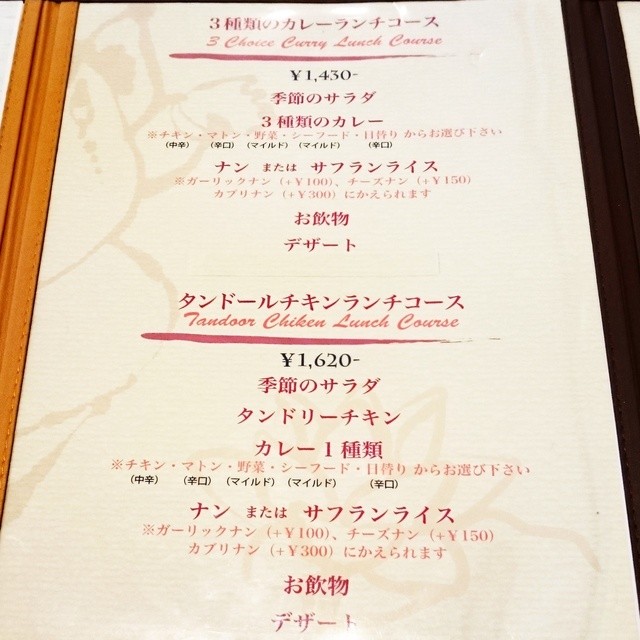 3種類のカレーランチコース
3 Choice Curry Lunch Course
¥1,430-
季節のサラダ
3種類のカレー
※チキン・マトン・野菜・シーフード・日替り からお選び下さい
（中辛） （辛口） （マイルド） （マイルド） （辛口）
ナン または サフランライス
※ガーリックナン（+¥100）、チーズナン（+¥150）
カブリナン（+¥300）にかえられます
お飲物
デザート
タンドールチキンランチコース
Tandoor Chiken Lunch Course
¥1,620-
季節のサラダ
タンドリーチキン
カレー1種類
※チキン・マトン・野菜・シーフード・日替り からお選び下さい
（中辛） （辛口） （マイルド） （マイルド） （辛口）
ナン または サフランライス
※ガーリックナン（+¥100）、チーズナン（+¥150）
カブリナン（+¥300）にかえられます
お飲物
デザート